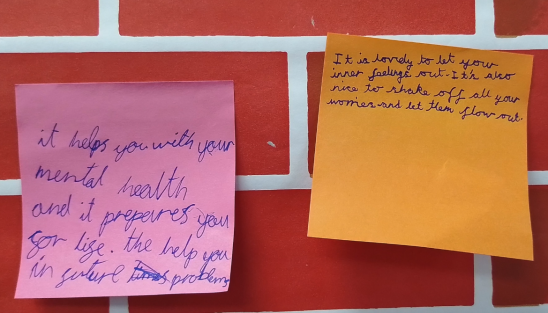 it helps you with your
mental health
and it prepares you
for life. the help you
in future problems
It is lovely to let your
inner feelings out. It's also
nice to shake off all your
worries and let them flow out.